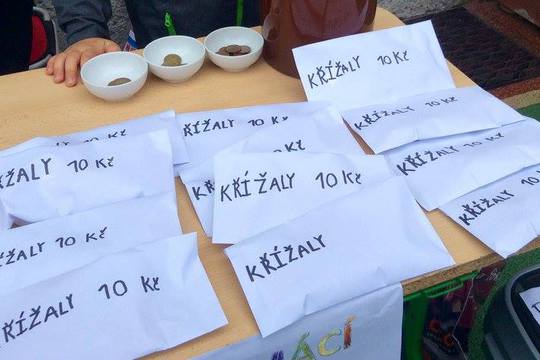 KŘÍŽALY 10 Kč
KŘÍŽALY 10 Kč
KŘÍŽALY 10 Kč
KŘÍŽALY 10 Kč
KŘÍŽALY 10 Kč
ŘÍŽALY 10 Kč
KŘÍŽALY 10 Kč
KŘÍŽALY 10 Kč
KŘÍŽALY 10 Kč
KŘÍŽALY
KŘÍŽALY 10 Kč
ÁCÍ